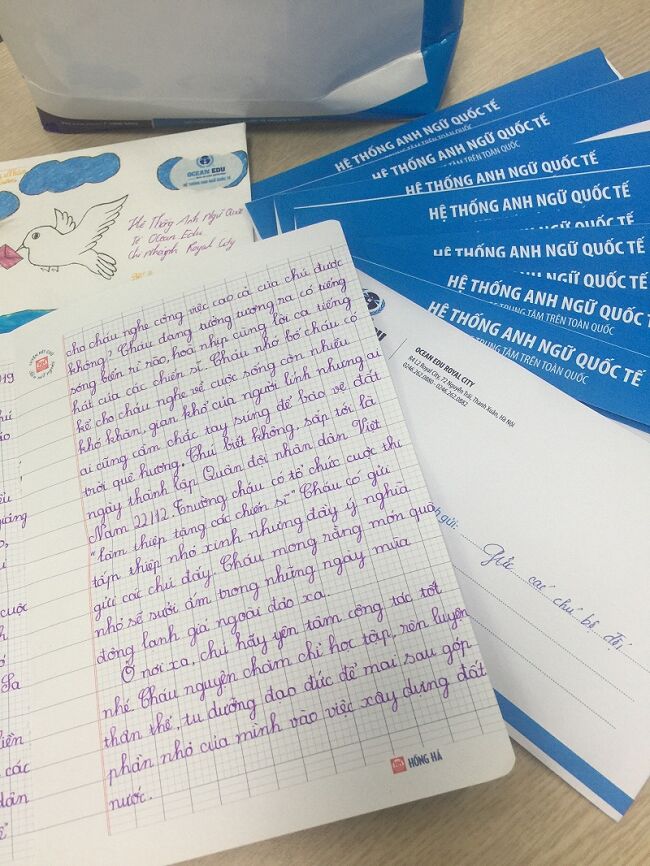 HỆ THỐNG ANH NGỮ QUỐC TẾ
TRUNG TÂM TRÊN TOÀN QUỐC
HỆ THỐNG ANH NGỮ QUỐC TẾ
TRUNG TÂM TRÊN TOÀN QUỐC
HỆ THỐNG ANH NGỮ QUỐC TẾ
HỆ THỐNG ANH NGỮ QUỐC TẾ
HỆ THỐNG ANH NGỮ QUỐC TẾ
HỆ THỐNG ANH NGỮ QUỐC TẾ
TRUNG TÂM TRÊN TOÀN QUỐC
HỆ THỐNG ANH NGỮ QUỐC TẾ
TRUNG TÂM TRÊN TOÀN QUỐC
OCEAN EDU
HỆ THỐNG ANH NGỮ QUỐC TẾ
Hệ Thống Anh Ngữ Quốc
Tế Ocean Edu
chi nhánh Royal City
cho cháu nghe công việc cao cả của chú được
không? Cháu đang tưởng tượng ra có tiếng
sóng biển rì rào, hoà nhịp cùng lời ca tiếng
hát của các chiến sĩ. Cháu nhớ bố cháu có
kể cho cháu nghe về cuộc sống còn nhiều
khó khăn, gian khổ của người lính nhưng ai
ai cũng cầm chắc tay súng để bảo vệ đất
trời quê hương. Chú biết không, sắp tới là
ngày thành lập Quân đội nhân dân Việt
Nam 22/12. Trường cháu có tổ chức cuộc thi
"Làm thiệp tặng các chiến sĩ" Cháu có gửi
tấp thiệp nhỏ xinh nhưng đầy ý nghĩa
gửi các chú đấy. Cháu mong rằng món quà
nhỏ sẽ sưởi ấm trong những ngày mùa
đông lạnh giá ngoài đảo xa.
Ở nơi xa, chú hãy yên tâm công tác tốt
nhé. Cháu nguyện chăm chỉ học tập, rèn luyện
thân thể, tu dưỡng đạo đức để mai sau góp
phần nhỏ của mình vào việc xây dựng đất
nước.
HỒNG HÀ
EDU
OCEAN EDU ROYAL CITY
R4 L2 Royal City, 72 Nguyễn Trãi, Thanh Xuân, Hà Nội
0246.262.0880 - 0246.262.0882
gửi:
Gửi các chú bộ đội